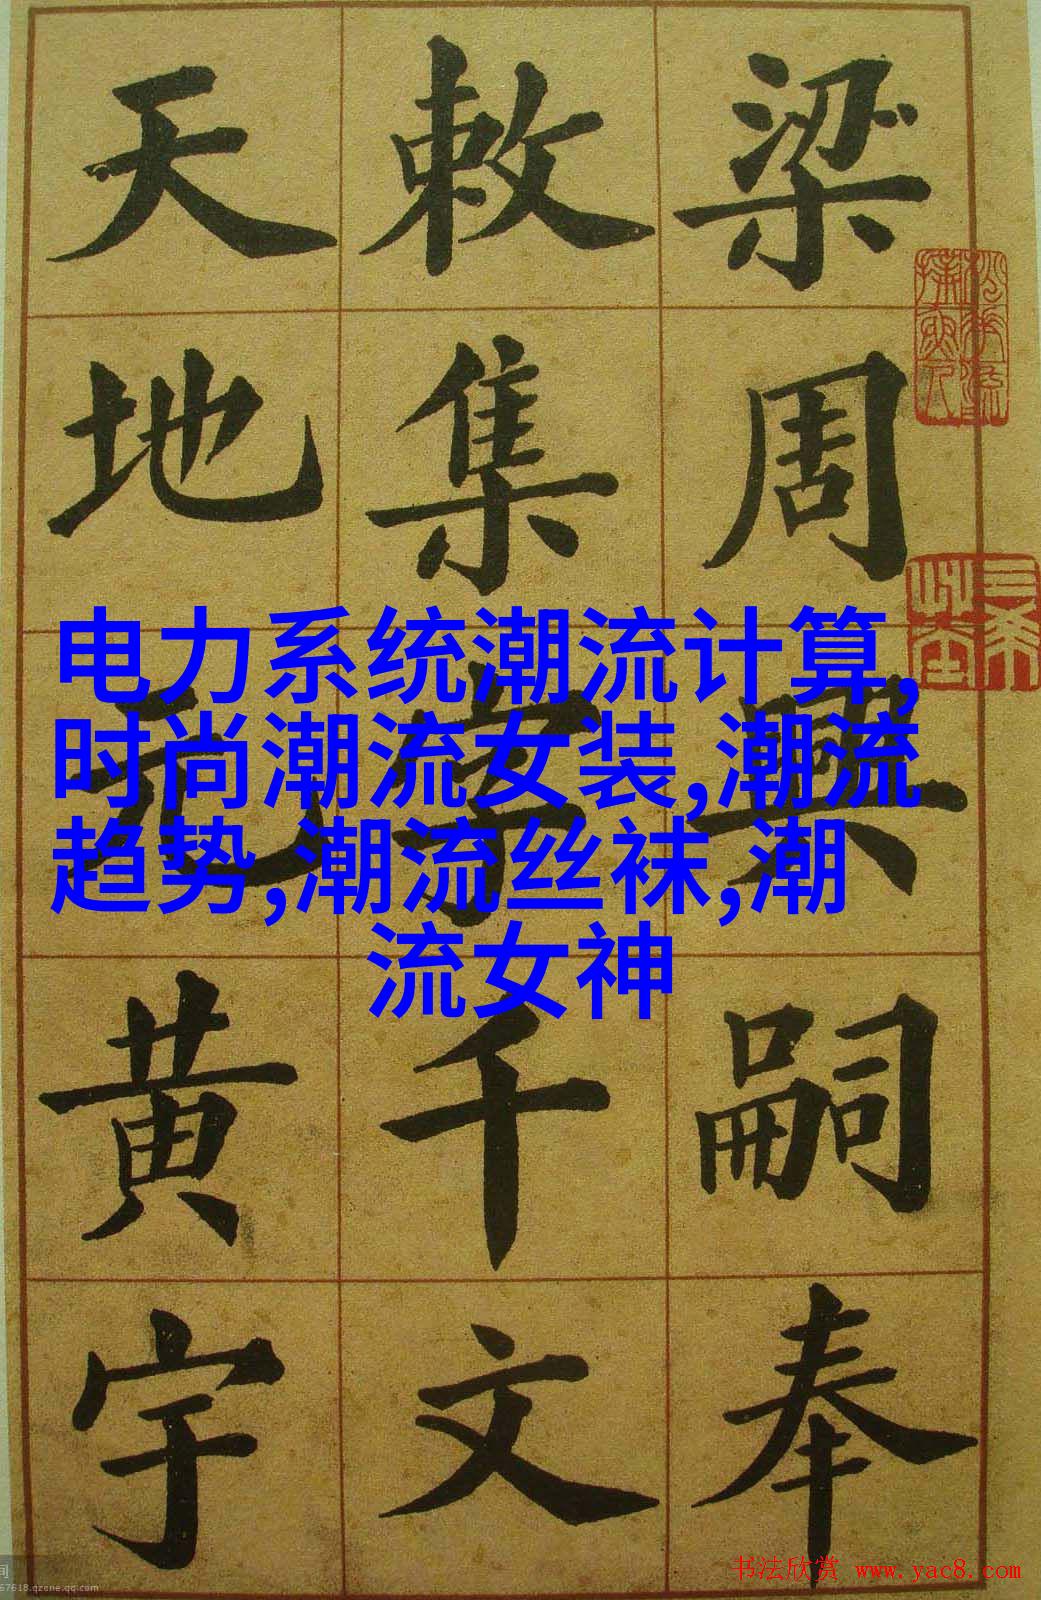 梁周興嗣奉
敕集字千文
天地元黄宇
电力系统潮流计算,
时尚潮流女装,潮流
趋势,潮流丝袜,潮
流女神
书法欣赏 www.yac8.com
67618.qzone.qq.com